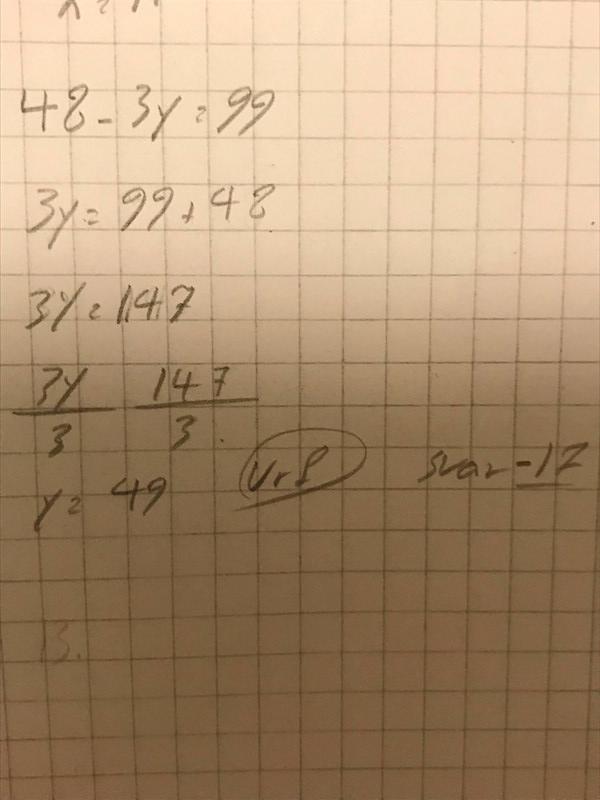 48 - 3y = 99
3y = 99 + 48
3y = 147
3y 147
3 3
y = 49 svar -17
13.